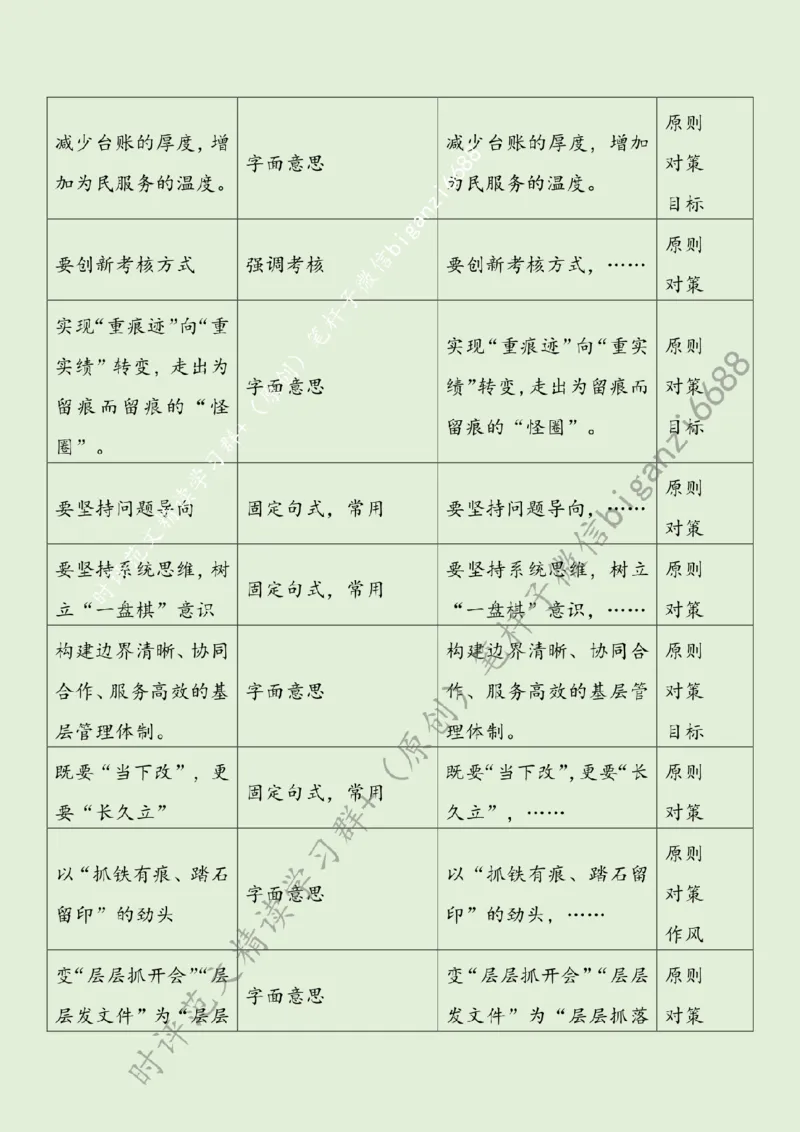 减少台账的厚度，增
加为民服务的温度。
字面意思
减少台账的厚度，增加
为民服务的温度。
原则
对策
目标
要创新考核方式
强调考核
要创新考核方式，……
原则
对策
实现“重痕迹”向“重
实绩”转变，走出为
留痕而留痕的“怪
圈”。
字面意思
实现“重痕迹”向“重实
绩”转变，走出为留痕而
留痕的“怪圈”。
原则
对策
目标
要坚持问题导向
固定句式，常用
要坚持问题导向，……
原则
对策
要坚持系统思维，树
立“一盘棋”意识
固定句式，常用
要坚持系统思维，树立
“一盘棋”意识，……
原则
对策
构建边界清晰、协同
合作、服务高效的基
层管理体制。
字面意思
构建边界清晰、协同合
作、服务高效的基层管
理体制。
原则
对策
目标
既要“当下改”，更
要“长久立”
固定句式，常用
既要“当下改”，更要“长
久立”，……
原则
对策
以“抓铁有痕、踏石
留印”的劲头
字面意思
以“抓铁有痕、踏石留
印”的劲头，……
原则
对策
作风
变“层层抓开会”“层
层发文件”为“层层
字面意思
变“层层抓开会”“层层
发文件”为“层层抓落
原则
对策
时评范文精读学习群+（原创）笔杆子微信biganzi6688
时评范文精读学习群+（原创）笔杆子微信biganzi6688